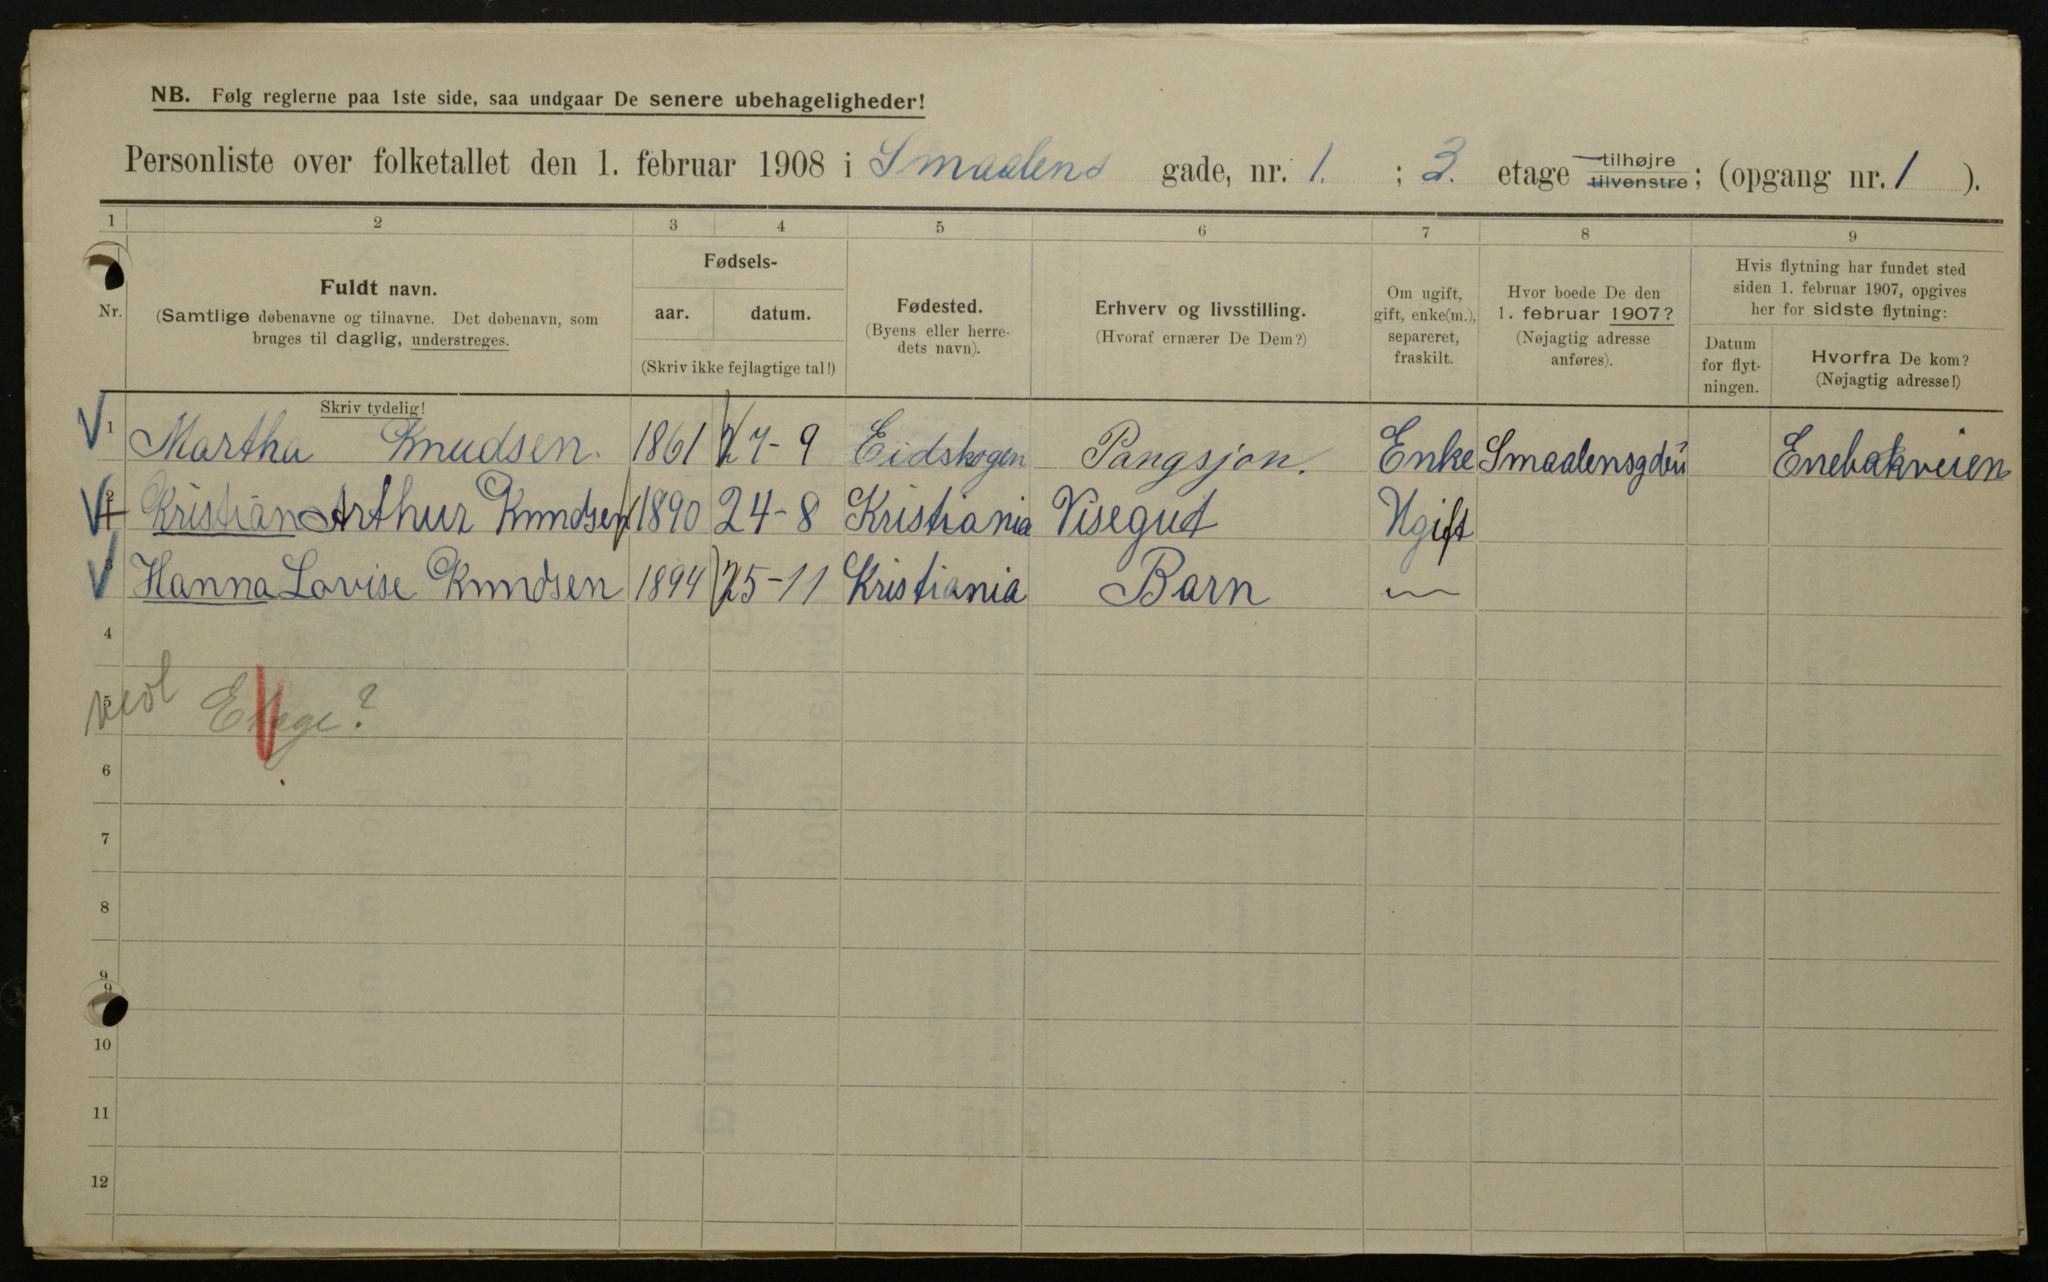 NB. Følg reglerne paa 1ste side, saa undgaar De senere ubehageligheder!
Personliste over folketallet den 1. februar 1908 i Smaalens gade, nr. 1. ; 3. etage tilhøjre tilvenstre; (opgang nr. 1 ).
1 2 3 4 5 6 7 8 9
Nr.
Fuldt navn.
(Samtlige døbenavne og tilnavne. Det døbenavn, som
bruges til daglig, understreges.
Skriv tydelig!
Fødsels-
aar. datum.
(Skriv ikke fejlagtige tal!)
Fødested.
(Byens eller herre-
dets navn).
Erhverv og livsstilling.
(Hvoraf ernærer De Dem?)
Om ugift,
gift, enke(m.),
separeret,
fraskilt.
Hvor boede De den
1. februar 1907?
(Nøjagtig adresse
anføres).
Hvis flytning har fundet sted
siden 1. februar 1907, opgives
her for sidste flytning:
Datum
for flyt-
ningen.
Hvorfra De kom?
(Nøjagtig adresse!)
1 Martha Knudsen. 1861 27-9 Eidskogen Pangsjon. Enke Enebakveien
2 Kristian Arthur Knudsen 1890 24-8 Kristiania Visegut Ugift
Hanna Lovise Knudsen 1894 25-11 Kristiania Barn
4
5 Etage?
6
7
8
9
9
10
11
12